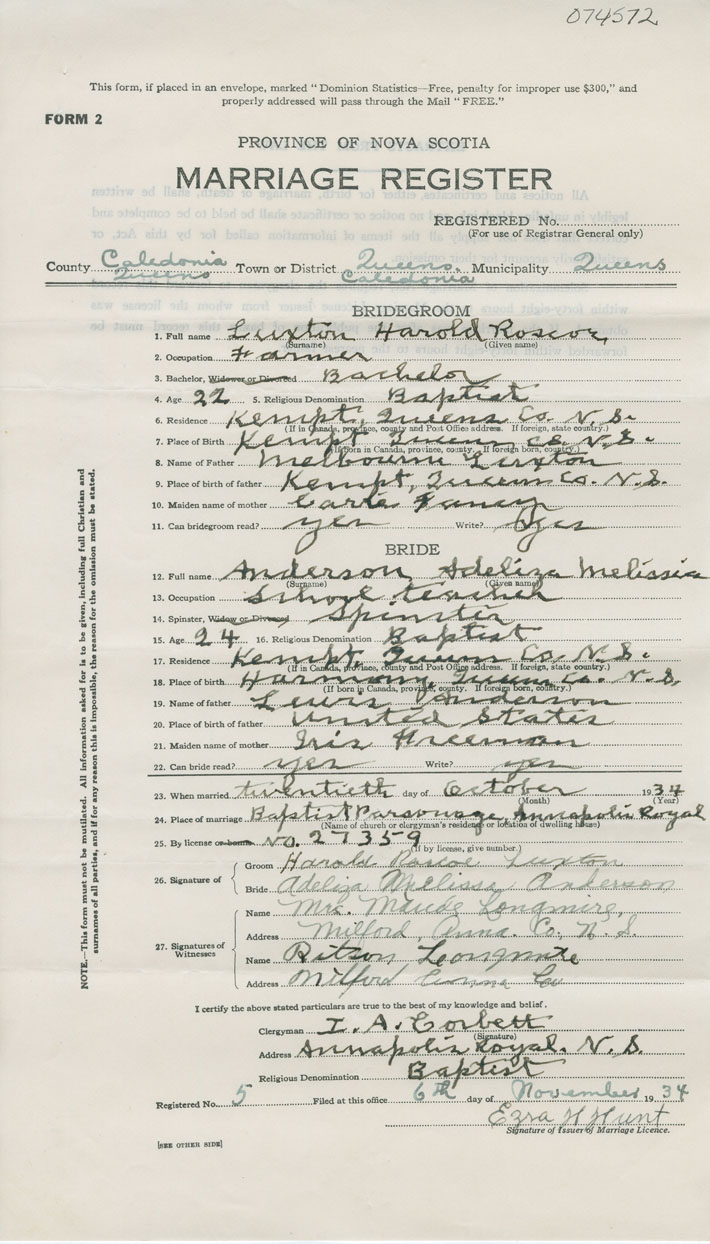 074572
This form, if placed in an envelope, marked "Dominion Statistics—Free, penalty for improper use $300," and
properly addressed will pass through the Mail "FREE."
FORM 2
PROVINCE OF NOVA SCOTIA
MARRIAGE REGISTER
REGISTERED No.
(For use of Registrar General only)
County Caledonia Queens Town or District Queens. Caledonia Municipality Queens
BRIDEGROOM
1. Full name Luxton Harold Roscoe
(Surname) (Given name)
2. Occupation Farmer
3. Bachelor, Widower or Divorced Bachelor
4. Age 22 5. Religious Denomination Baptist
6. Residence Kempt, Queens Co. N.S.
(If in Canada, province, county and Post Office address. If foreign, state country.)
7. Place of Birth Kempt Queens Co. N.S.
(If born in Canada, province, county. If foreign born, country.)
8. Name of Father Melbourne Luxton
9. Place of birth of father Kempt, Queens Co. N.S.
10. Maiden name of mother Carie Fancy
11. Can bridegroom read? yes Write? Yes
BRIDE
12. Full name Anderson Adeliza Melissia
(Surname) (Given name)
13. Occupation School teacher
14. Spinster, Widow or Divorced Spinster
15. Age 24 16. Religious Denomination Baptist
17. Residence Kempt, Queens Co. N.S.
(If in Canada, province, county and Post Office address. If foreign, state country.)
18. Place of birth Harmony, Queens Co. N.S.
(If born in Canada, province, county. If foreign born, country.)
19. Name of father Lewis Anderson
20. Place of birth of father United States
21. Maiden name of mother Iris Freeman
22. Can bride read? yes Write? yes
23. When married twentieth day of October 1934
(Month) (Year)
24. Place of marriage Baptist Parsonage, Annapolis Royal
(Name of church or clergyman's residence or location of dwelling house)
25. By license or banns No. 27359
(If by license, give number.)
26. Signature of
Groom Harold Roscoe Luxton
Bride Adeliza Melissa Anderson
27. Signatures of Witnesses
Name Mrs. Maude Longmire,
Address Milford, Anna. Co. N.S.
Name Ritson Longmire
Address Milford Anna Co
I certify the above stated particulars are true to the best of my knowledge and belief.
Clergyman I. A. Corbett
(Signature)
Address Annapolis Royal. N.S.
Religious Denomination Baptist
Registered No. 5 Filed at this office 6th day of November 1934
Ezra H Hunt
Signature of Issuer of Marriage Licence.
[SEE OTHER SIDE]
NOTE.—This form must not be mutilated. All information asked for is to be given, including full Christian and
surnames of all parties, and if for any reason this is impossible, the reason for the omission must be stated.